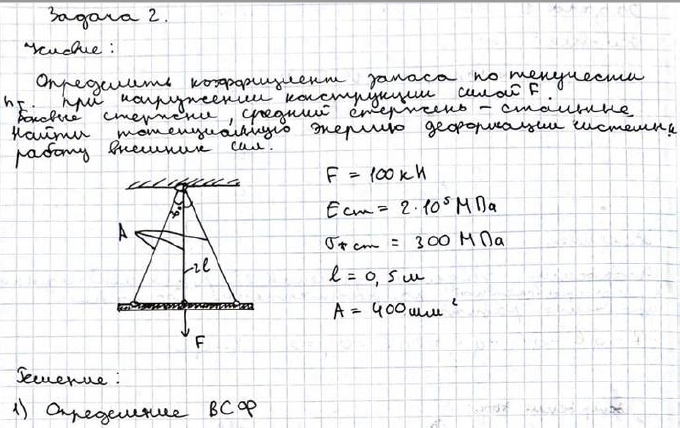 Задача 2.
Условие:
Определить коэффициент запаса по текучести
nт. при нагружении конструкции силой F.
Боковые стержни, средний стержень – стальные
Найти потенциальную энергию деформации системы и
работу внешних сил.
F = 100 кН
Eст = 2·10⁵ МПа
σт ст = 300 МПа
l = 0,5 м
A = 400 мм²
A
2l
F
Решение:
1) Определение ВСФ